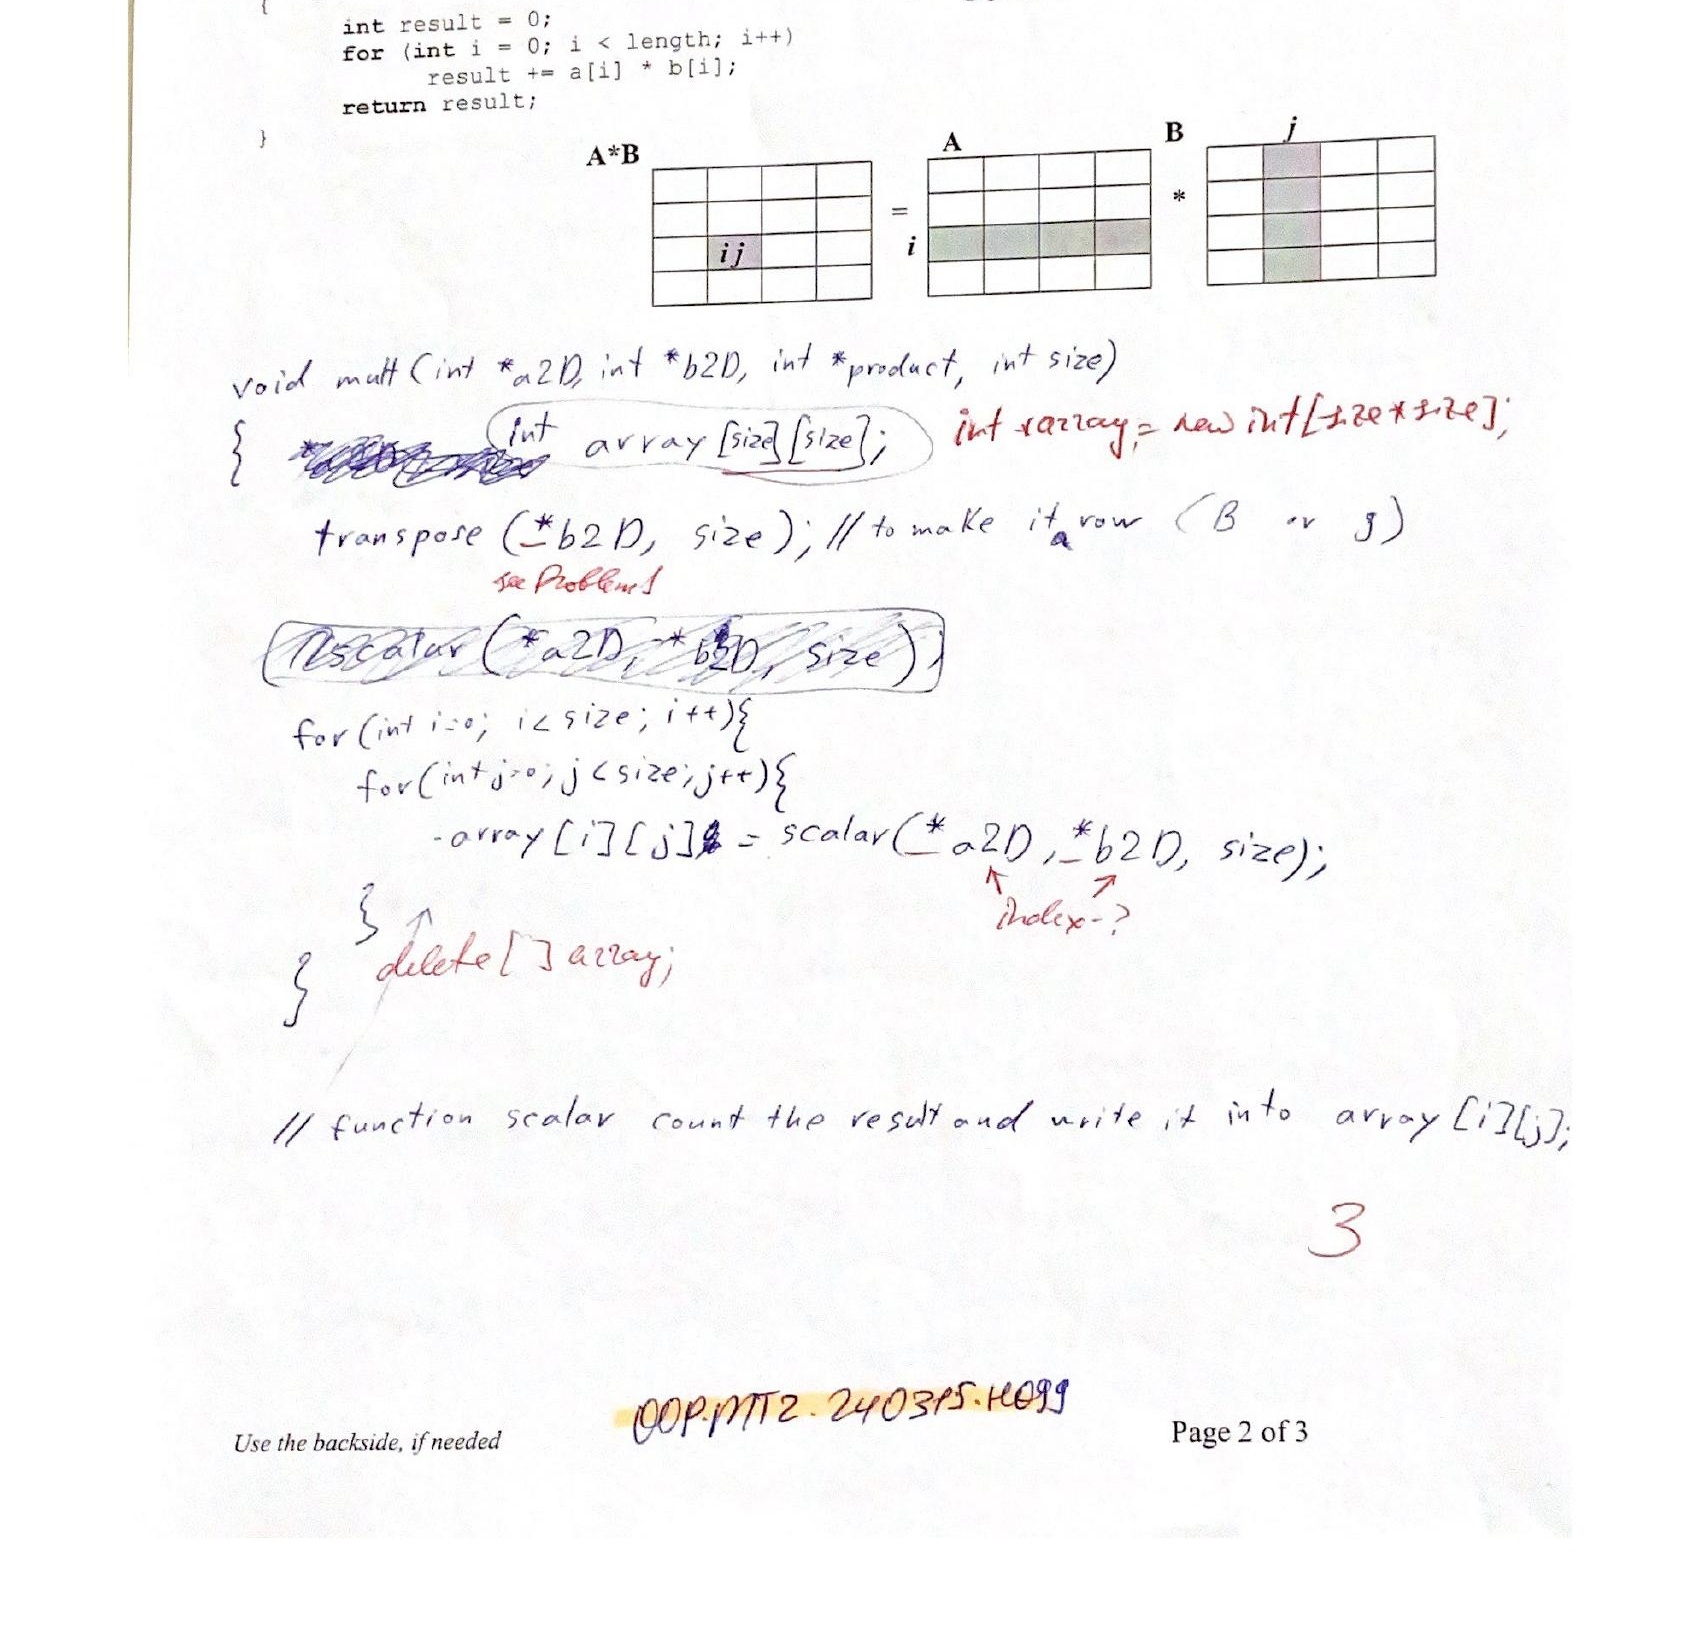 {
int result = 0;
for (int i = 0; i < length; i++)
result += a[i] * b[i];
return result;
}
A*B
=
A
*
B
j
i
ij
void mult (int *a2D, int *b2D, int *product, int size)
{ int array [size][size]; int *array = new int[size*size];
transpose (*b2D, size); // to make it a row (B or j)
see Problem 1
scalar (*a2D, *b2D, size);
for (int i=0; i< size; i++){
for (int j=0; j<size; j++){
array [i][j] = scalar(*a2D, *b2D, size);
index-?
}
delete[] array;
}
// function scalar count the result and write it into array [i][j];
3
OOP.MT2.240315.H099
Use the backside, if needed
Page 2 of 3